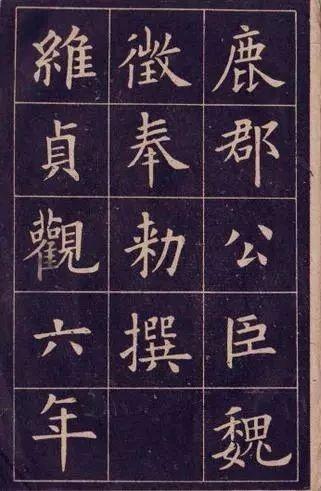 鹿郡公臣魏
徵奉勑撰
維貞觀六年